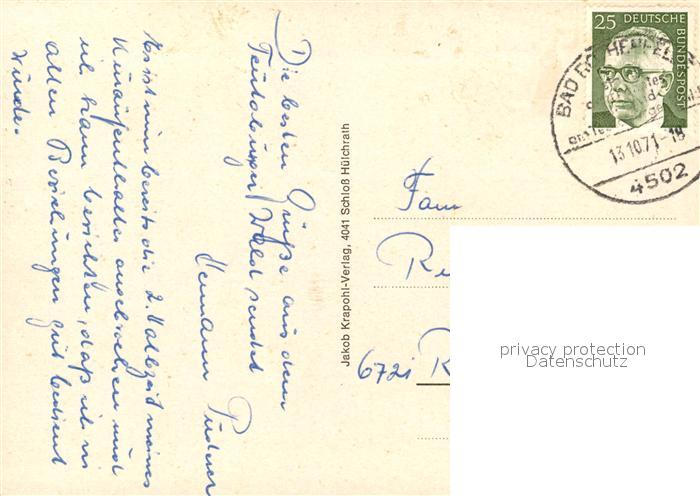 Die besten Grüße aus dem
Teutoburger Wald sendet
Hermann
Es ist nun bereits die 2. Halbzeit meines
Kuraufenthaltes angebrochen und
ich kann berichten, daß ich in
allen Beziehungen gut bedient
wurde.
Jakob Krapohl-Verlag, 4041 Schloß Hülchrath
25 DEUTSCHE
BUNDESPOST
BAD
13.10.71-18
4502
Fam
6721
privacy protection
Datenschutz